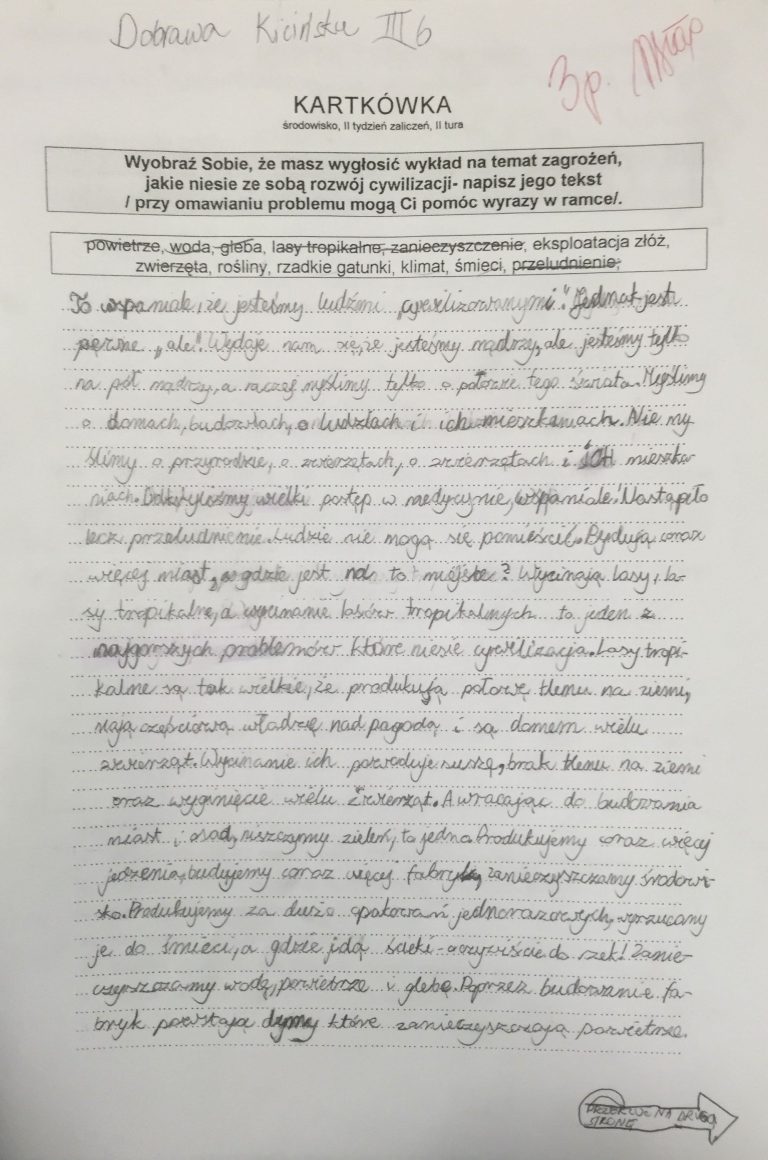 Dobrawa Kicińska III b
3p.
KARTKÓWKA
środowisko, II tydzień zaliczeń, II tura
Wyobraź Sobie, że masz wygłosić wykład na temat zagrożeń,
jakie niesie ze sobą rozwój cywilizacji- napisz jego tekst
/ przy omawianiu problemu mogą Ci pomóc wyrazy w ramce/.
powietrze, woda, gleba, lasy tropikalne, zanieczyszczenie, eksploatacja złóż,
zwierzęta, rośliny, rzadkie gatunki, klimat, śmieci, przeludnienie;
To wspaniale, że jesteśmy ludźmi „cywilizowanymi". Jednak jest
pewne „ale". Wydaje nam się, że jesteśmy mądrzy, ale jesteśmy tylko
na pół mądrzy, a raczej myślimy tylko o połowie tego świata. Myślimy
o domach, budowlach, o ludziach i ich mieszkaniach. Nie my
ślimy o przyrodzie, o zwierzętach, o zwierzętach i ICH mieszka
niach. Odkryliśmy wielki postęp w medycynie, wspaniale! Nastąpiło
lecz przeludnienie. Ludzie nie mogą się pomieścić. Budują coraz
więcej miast, a gdzie jest na to miejsce? Wycinają lasy, la-
sy tropikalne, a wycinanie lasów tropikalnych to jeden z
najgorszych problemów które niesie cywilizacja. Lasy tropi-
kalne są tak wielkie, że produkują połowę tlenu na ziemi,
mają częściową władzię nad pagodą i są domem wielu
zwierząt. Wycinanie ich powoduje suszę, brak tlenu na ziemi
oraz wyginięcie wielu zwierząt. A wracając do budowania
miast i osad, niszczymy zieleń, to jedno. Produkujemy coraz więcej
jedzenia, budujemy coraz więcej fabryk, zanieczyszczamy środowi-
sko. Produkujemy za dużo opakowań jednorazowych, wyrzucamy
je do śmieci, a gdzie idą ścieki - oczywiście do rzek! Zanie-
czyszczamy wodę, powietrze i glebę. Poprzez budowanie fa-
bryk powstają dymy które zanieczyszczają powietrze.
PRZEKLUĆ NA DRUGĄ
STRONĘ